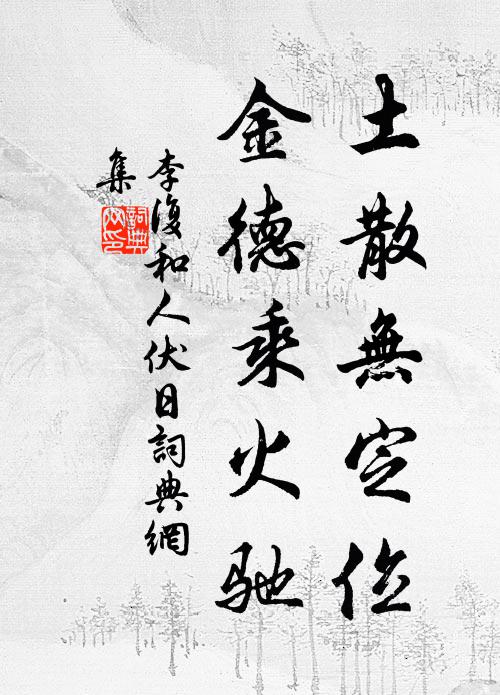 土散無定位
金德乘火驰
李復和人伏日詞典網
集
詞典
网印